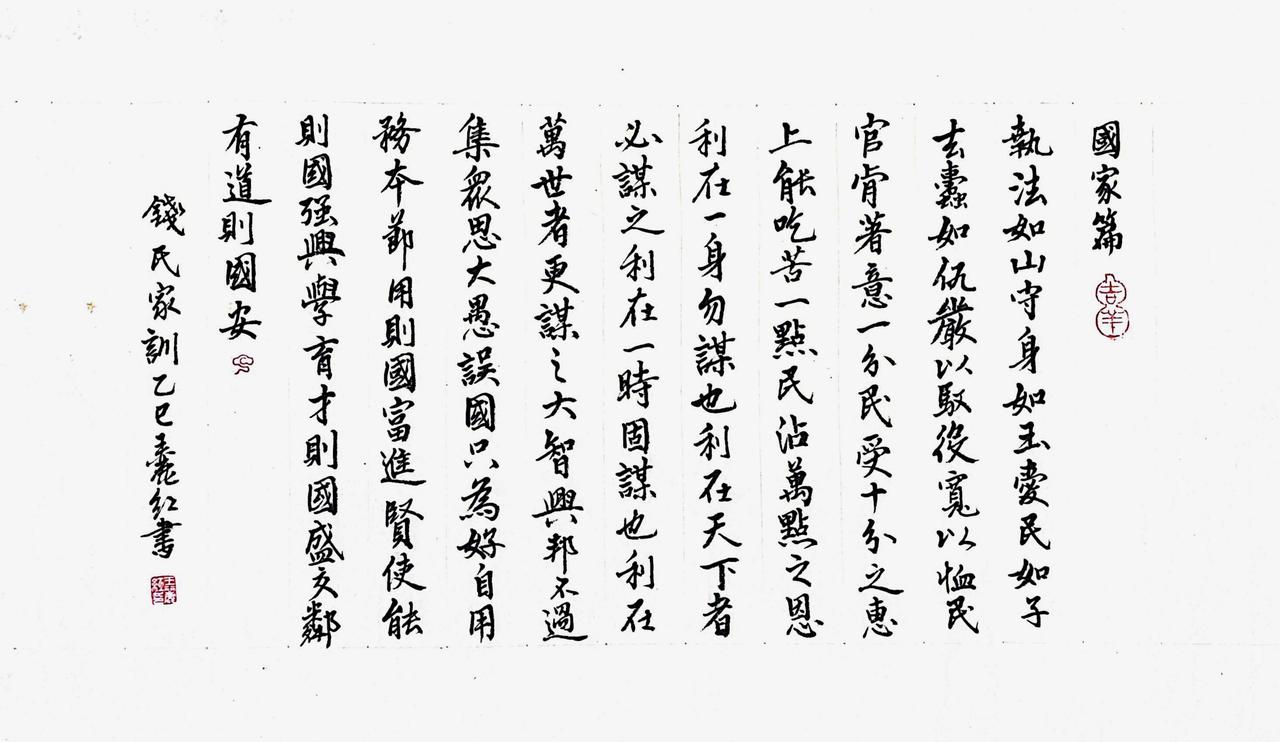 國家篇
吉羊
執法如山守身如玉愛民如子
去蠹如仇嚴以馭役寬以恤民
官肯著意一分民受十分之惠
上能吃苦一點民沾萬點之恩
利在一身勿謀也利在天下者
必謀之利在一時固謀也利在
萬世者更謀之大智興邦不過
集衆思大愚誤國只為好自用
務本節用則國富進賢使能
則國強興學育才則國盛交鄰
有道則國安
錢氏家訓乙巳王麗紅書